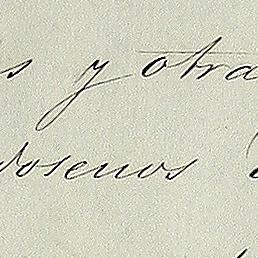 s y otra
dosenos